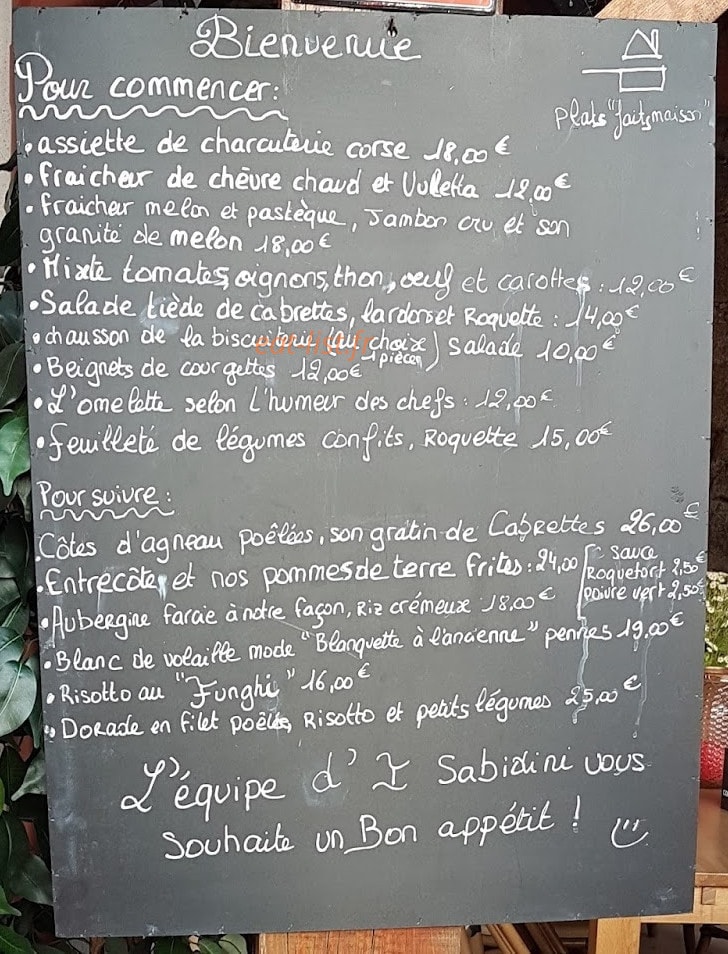 Bienvenue
Pour commencer:
Plats "faits maison"
• assiette de charcuterie corse 18,00€
• fraicheur de chèvre chaud et Vuletta 12,00€
• fraicheur melon et pastèque, Jambon cru et son
granité de melon 18,00€
• Mixte tomates, oignons, thon, oeuf et carottes : 12,00€
• Salade tiède de cabrettes, lardons et Roquette : 14,00€
• chausson de la biscuiterie au choix (1 pièce) salade 10,00€
• Beignets de courgettes 12,00€
• L'omelette selon l'humeur des chefs : 12,00€
• feuilleté de légumes confits, Roquette 15,00€
Pour suivre :
Côtes d'agneau poêlées, son gratin de Cabrettes 26,00€
• Entrecôte, et nos pommes de terre frites : 24,00
sauce
Roquefort 2,50€
poivre vert 2,50€
• Aubergine farcie à notre façon, Riz crémeux 18,00€
• Blanc de volaille mode "Blanquette à l'ancienne" pennes 19,00€
• Risotto au "Funghi" 16,00€
• Dorade en filet poêlés, Risotto et petits légumes 25,00€
L'équipe d' I Sabidini vous
souhaite un Bon appétit !